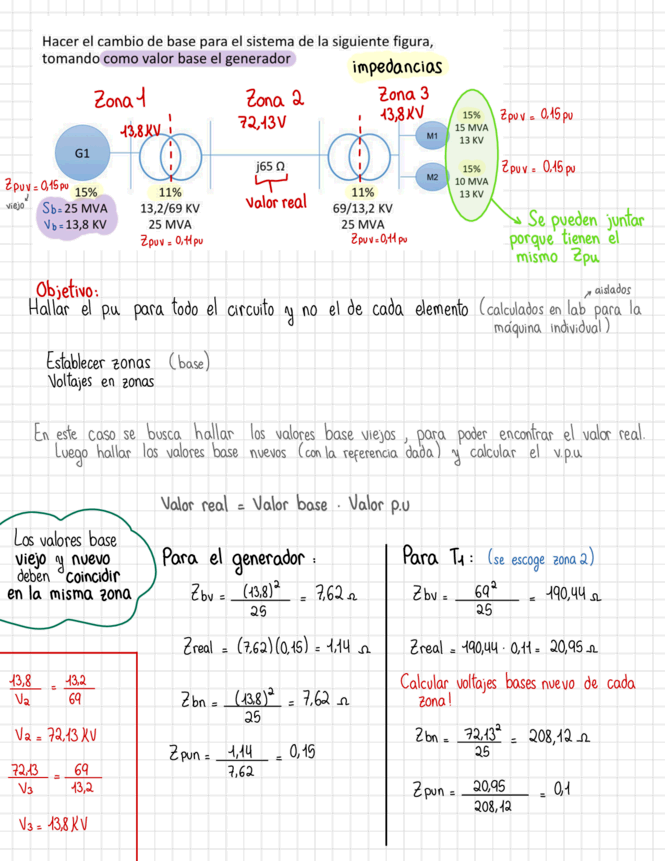 Hacer el cambio de base para el sistema de la siguiente figura,
tomando como valor base el generador
impedancias
Zona 1
Zona 2
Zona 3
13,8 KV
72,13 V
13,8 KV
G1
j65 Ω
valor real
M1
M2
15%
15 MVA
13 KV
15%
10 MVA
13 KV
Zpuv = 0,15 pu
Zpuv = 0,15 pu
Zpuv = 0,15 pu
viejo
15%
Sb = 25 MVA
Vb = 13,8 KV
11%
13,2/69 KV
25 MVA
Zpuv = 0,11 pu
11%
69/13,2 KV
25 MVA
Zpuv = 0,11 pu
Se pueden juntar
porque tienen el
mismo Zpu
Objetivo:
Hallar el p.u para todo el circuito y no el de cada elemento (calculados en lab para la
máquina individual)
aislados
Establecer zonas (base)
Voltajes en zonas
En este caso se busca hallar los valores base viejos, para poder encontrar el valor real.
Luego hallar los valores base nuevos (con la referencia dada) y calcular el v.p.u
Valor real = Valor base . Valor p.u
Los valores base
viejo y nuevo
deben coincidir
en la misma zona
13,8/V2 = 13,2/69
V2 = 72,13 KV
72,13/V3 = 69/13,2
V3 = 13,8 KV
Para el generador:
Zbv = (13,8)²/25 = 7,62 Ω
Zreal = (7,62)(0,15) = 1,14 Ω
Zbn = (13,8)²/25 = 7,62 Ω
Zpun = 1,14/7,62 = 0,15
Para T1: (se escoge zona 2)
Zbv = 69²/25 = 190,44 Ω
Zreal = 190,44 · 0,11 = 20,95 Ω
Calcular voltajes bases nuevo de cada
zona!
Zbn = 72,13²/25 = 208,12 Ω
Zpun = 20,95/208,12 = 0,1